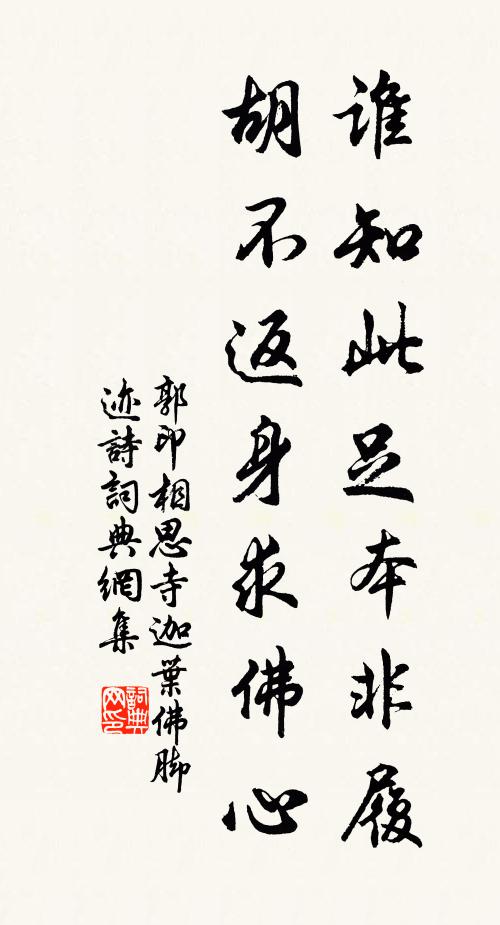 誰知此足本非履
胡不返身求佛心
郭印相思寺迦葉佛脚
迹詩詞典網集
詞典
网印